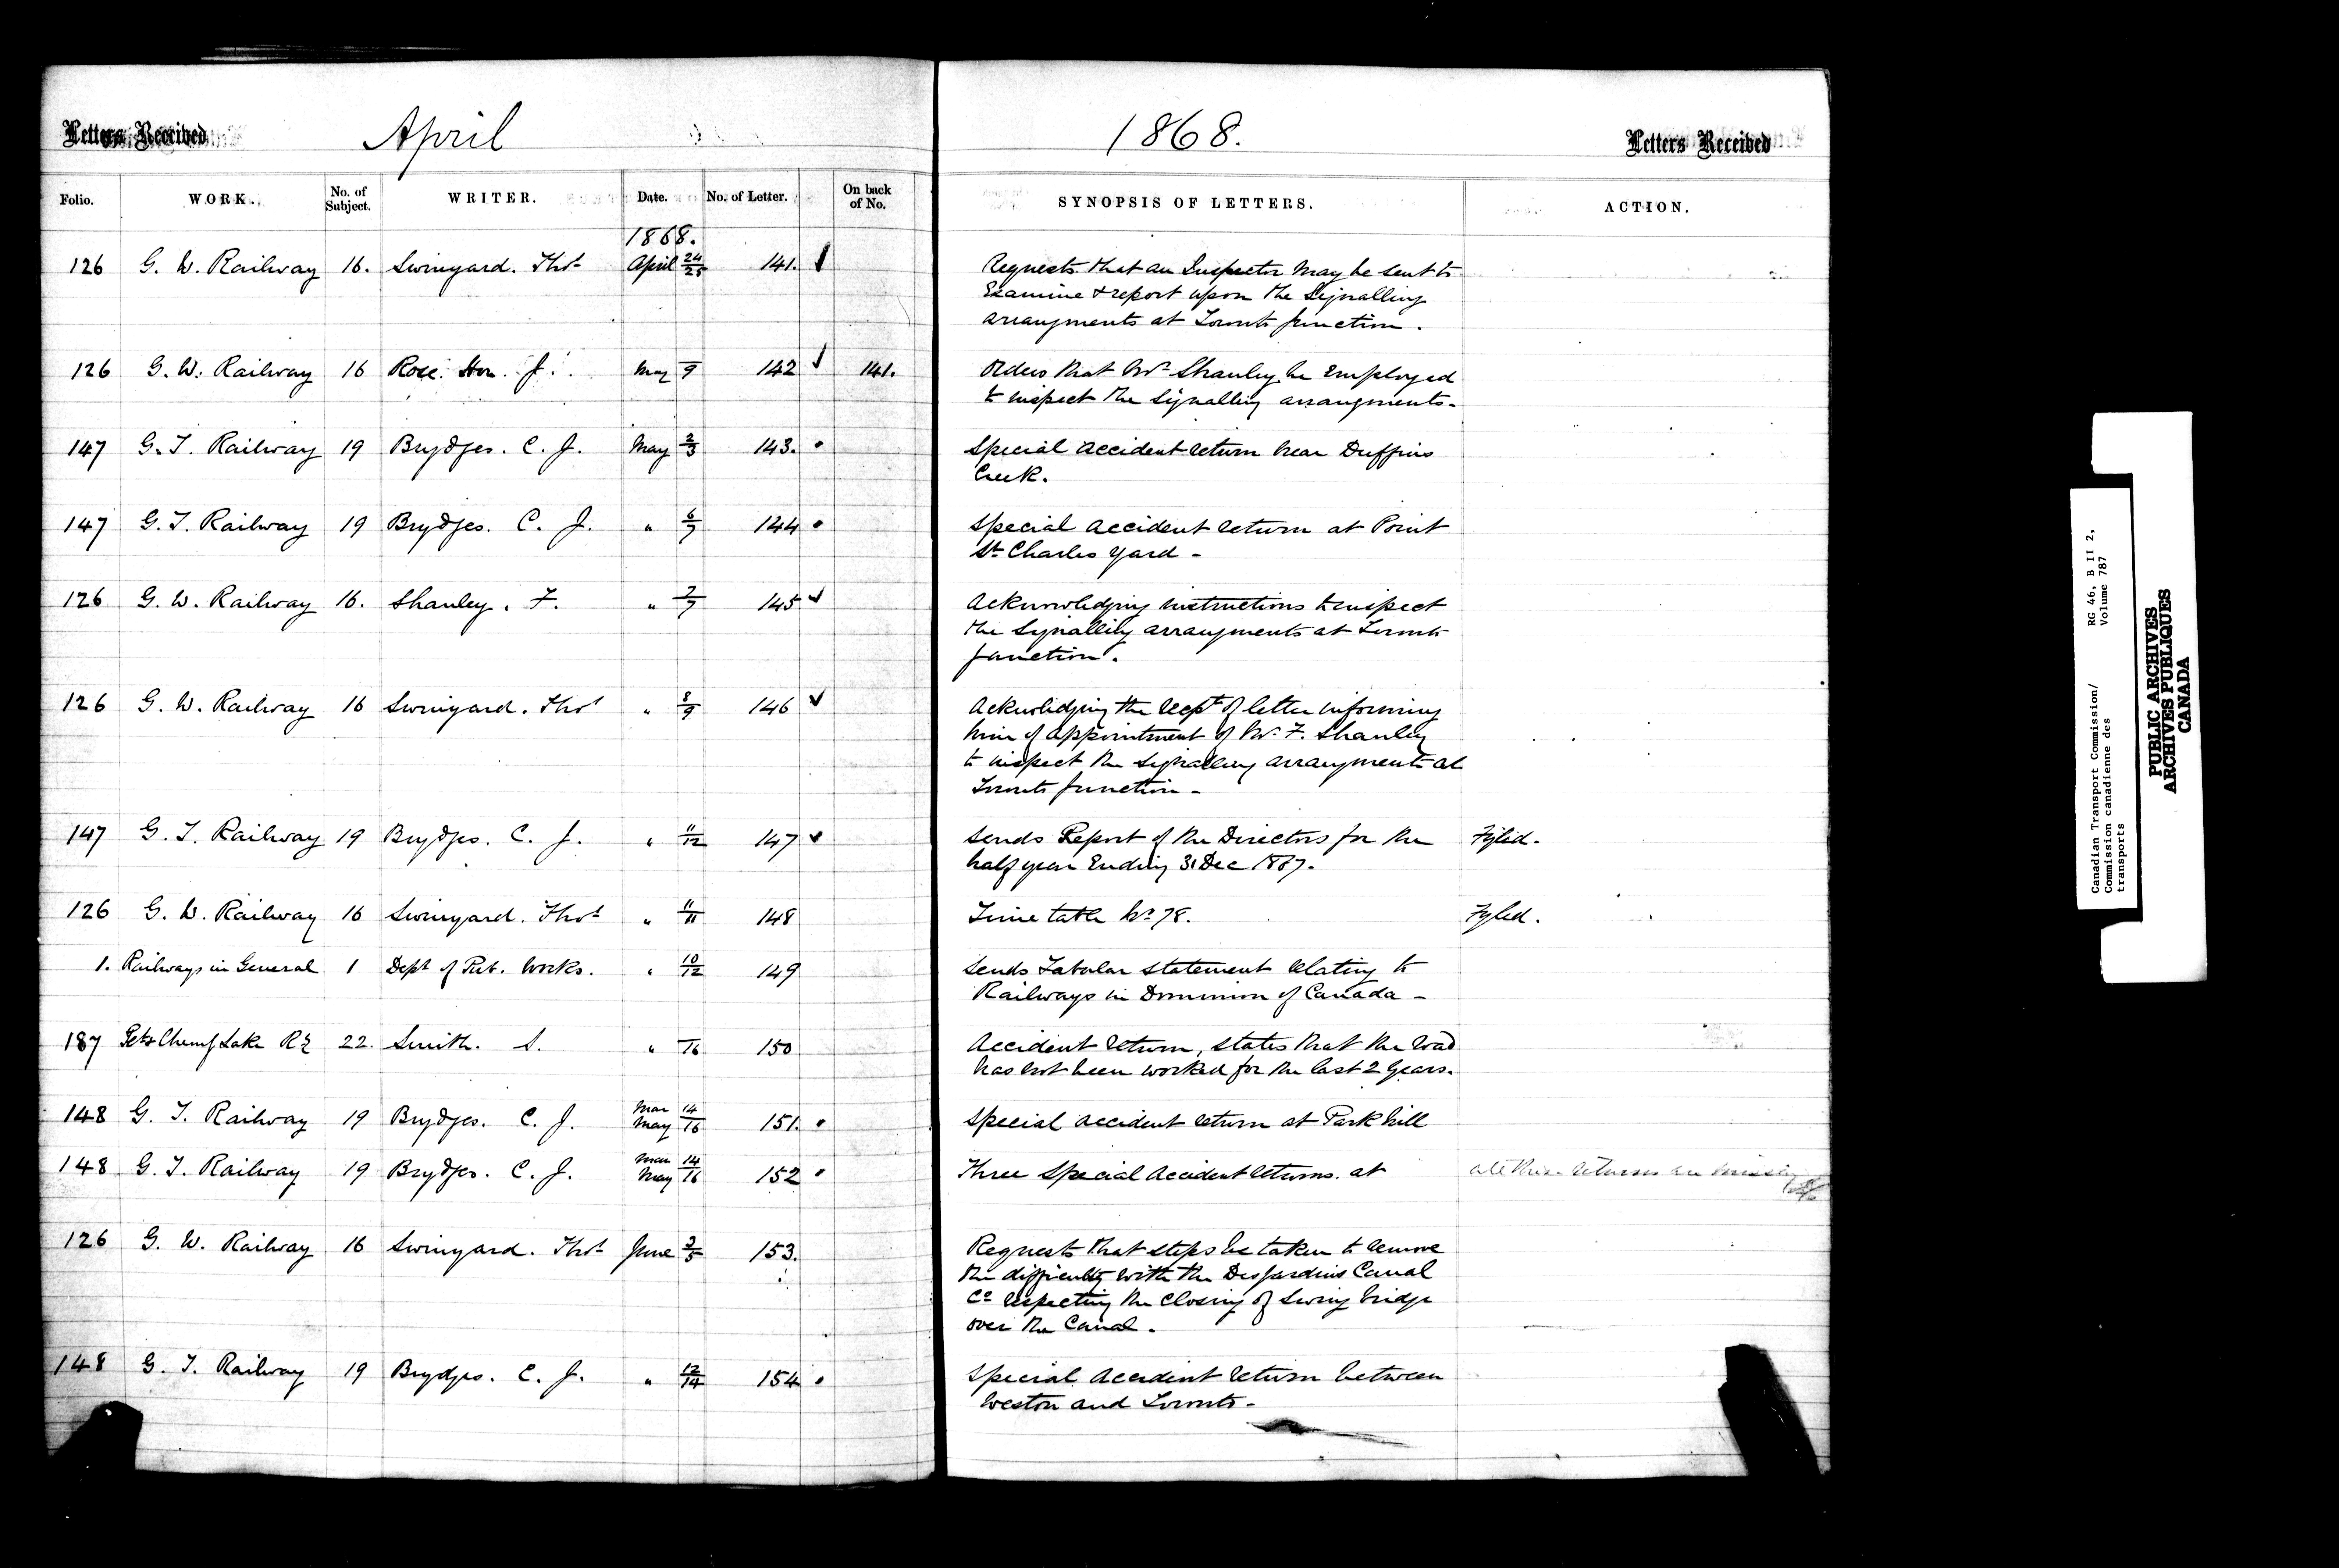 Letters Received
April
1868.
Letters Received
Folio. WORK. No. of Subject. WRITER. Date. No. of Letter. On back of No. SYNOPSIS OF LETTERS. ACTION.
1868.
126 G. W. Railway 16. Swinyard. Thos April 24/25 141. Requests that an Inspector may be sent to
Examine & report upon the Signalling
arrangments at Toronto Junction.
126 G. W. Railway 16 Rose. Hon. J. May 9 142 141. Orders that Mr Shanley be Employed
to inspect the Signalling arrangments-
147 G. T. Railway 19 Brydges. C. J. May 2/3 143. Special Accident return near Duffins
Creek.
147 G. T. Railway 19 Brydges. C. J. " 6/7 144 Special Accident return at Point
St Charles Yard -
126 G. W. Railway 16. Shanley. F. " 7/7 145 Acknowledging instructions to inspect
the Signalling arrangments at Toronto
Junction.
126 G. W. Railway 16 Swinyard. Thos " 8/9 146 Acknowledging the recpt of letter informing
him of appointment of Mr. F. Shanley
to inspect the Signalling arrangments at
Toronto Junction -
147 G. T. Railway 19 Brydges. C. J. " 11/12 147 Sends Report of the Directors for the Fyled.
half year Ending 31 Dec 1867.
126 G. W. Railway 16 Swinyard. Thos " 11/11 148 Time table No 78. Fyled.
1. Railways in General 1 Dept of Pub. Works. " 10/12 149 Sends Tabular Statement relating to
Railways in Dominion of Canada -
187 Petr & Chemg Lake Ry 22. Smith. S. " 16 150 Accident return, states that the road
has not been worked for the last 2 Years.
148 G. T. Railway 19 Brydges. C. J. Mar 14 May 16 151. Special Accident return at Park hill
148 G. T. Railway 19 Brydges. C. J. Mar 14 May 16 152 Three Special Accident returns. at all these returns are missing
126 G. W. Railway 16 Swinyard. Thos June 3/5 153. Requests that steps be taken to remove
the difficulty with the Desjardins Canal
Co respecting the Closing of Swing bridge
over the Canal.
148 G. T. Railway 19 Brydges. C. J. " 12/14 154 Special Accident return between
Weston and Toronto -
RG 46, B II 2,
Volume 787
Canadian Transport Commission/
Commission canadienne des
transports
PUBLIC ARCHIVES
ARCHIVES PUBLIQUES
CANADA